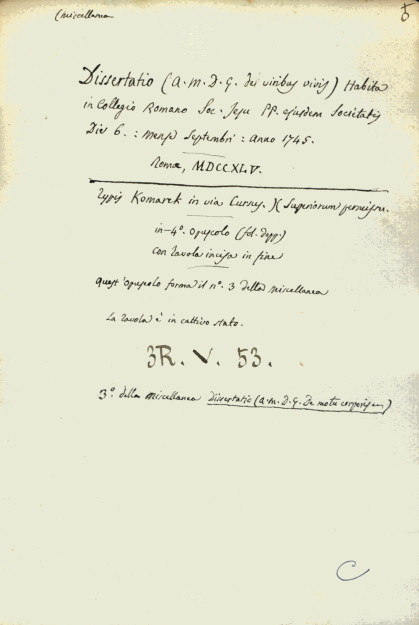 (miscellanea
5
Dissertatio (a. m. D. G. de viribus vivis) Habita
in Collegio Romano Soc. Jesu PP. ejusdem Societatis
Die 6. : mense Septembri : anno 1745.
Romæ, MDCCXLV.
Typis Komarek in via Cursus. )( Superiorum permissu.
in-4º. opuscolo (fol.
con tavola incisa in fine
quest'opuscolo forma il nº. 3 della miscellanea
La tavola è in cattivo stato.
3R. V. 53.
3º. della miscellanea Dissertatio (a. m. D. G. De motu corporis
C